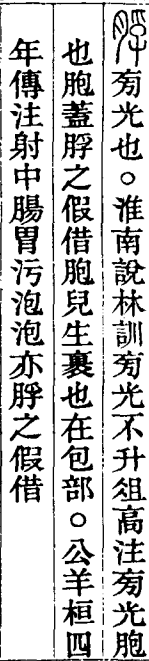 脬㫄光也○淮南說林訓㫄光不升俎高注㫄光胞
也胞蓋脬之假借胞兒生裹也在包部○公羊桓四
年傳注射中腸胃污泡泡亦脬之假借